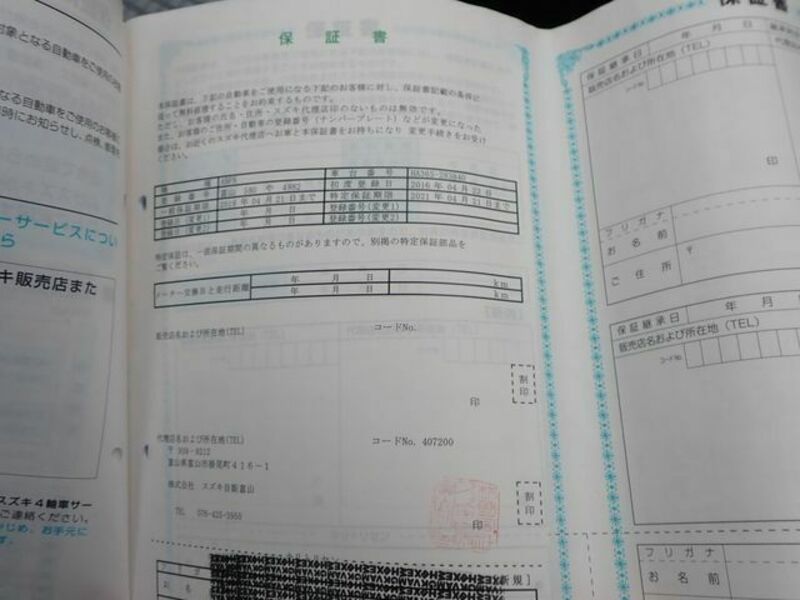 対象となる自動車をご使用の
なる自動車をご使用のお客様
時にお知らせし、点検、
ーサービスについ
ら
キ販売店また
スズキ4輪車サー
ご連絡ください。
保証書
本保証書は、下記の自動車をご使用になる下記のお客様に対し、保証書記載の条件に
従って無料修理することをお約束するものです。
ただし、お客様の氏名・住所・スズキ代理店印のないものは無効です。
また、お客様のご住所・自動車の登録番号（ナンバープレート）などが変更になった
場合は、お近くのスズキ代理店へお車と本保証書をお持ちになり 変更手続きをお受け
ください。
車台番号
登録番号 富山 580 や 4982 初度登録日 2016年04月22日
一般保証期限 2019年04月21日まで 特定保証期限 2021年04月21日まで
登録日(変更1) 登録番号(変更1)
登録日(変更2) 登録番号(変更2)
特定保証は、一部保証期間の異なるものがありますので、別掲の特定保証部品を
ご覧ください。
メーター交換日と走行距離 年 月 日 km
年 月 日 km
販売店名および所在地(TEL) コードNo.
割印
印
代理店名および所在地(TEL) コードNo. 407200
〒 939-8212
富山県富山市掛尾町416-1
株式会社 スズキ自販富山
TEL 076-425-3955
印
割印
新規]
お名
保証書
年 月 日
保証継承日
販売店名および所在地（TEL）
コードNo
印
フリガナ
お名前
ご住所 〒
保証継承日 年 月
販売店名および所在地（TEL）
コードNo
フリガナ
お名前